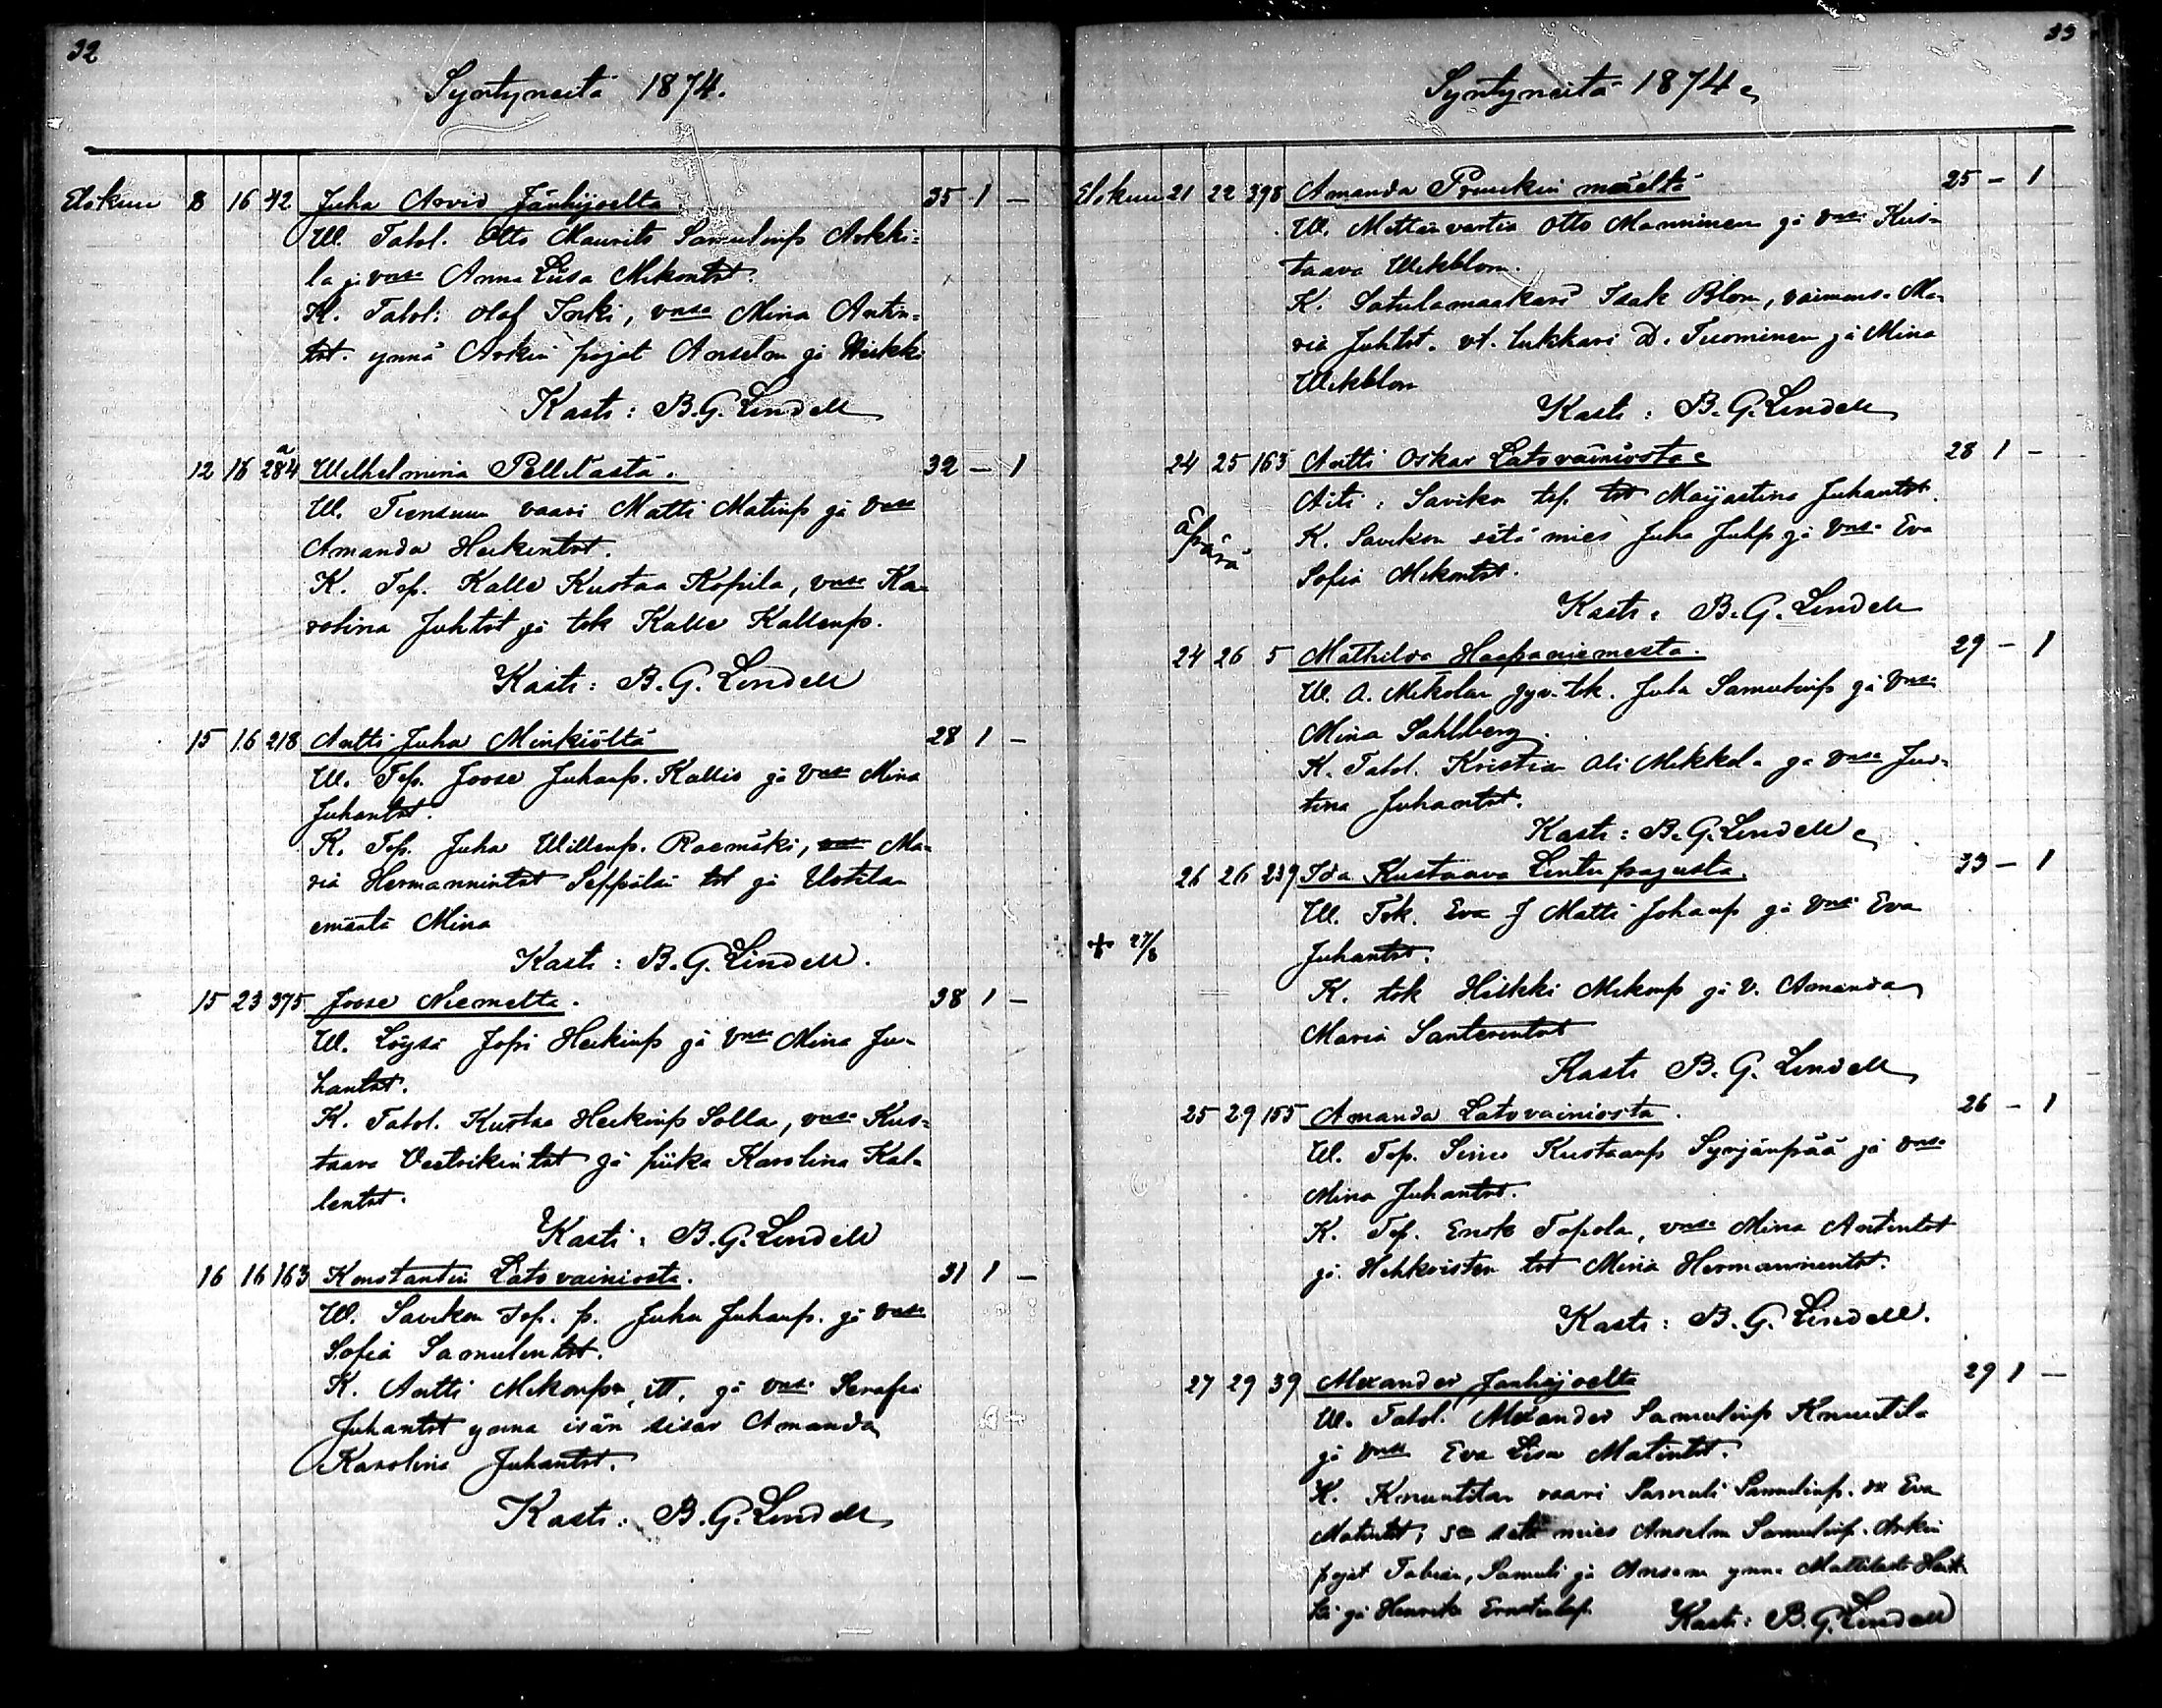 32
Syntyneitä 1874.
Elokuu 8 16 42 Juha Arvid Jänhijoelta 35 1 —
W. Talol. Otto Maurits Samulinp Arkki=
la ja vmsa Anna Liisa Mikontyt.
K. Talol. Olof Inki, vmsa Mina Antin=
tyt. ynnä Arkin pojat Anselm ja Heikki
Kasti: B. G. Lindell
12 16 284 a Wilhelmina Pellilästä. 32 — 1
W. Tiensuun vaari Matti Matinp ja vmsa
Amanda Heikintyt.
K. Tsp. Kalle Kustaa Kopila, vmsa Ka=
rolina Juhtyt ja tok Kalle Kallenp.
Kasti: B. G. Lindell
15 16 218 Antti Juha Minkiöltä 28 1 —
W. Tsp. Joose Juhanp. Kallio ja vmsa Mina
Juhantyt.
K. Tsp. Juha Willenp. Raemäki, vmsa Ma=
ria Hermannintyt Seppälän tyt ja Uotilan
emäntä Mina
Kasti: B. G. Lindell.
15 23 375 Joose Niemelta. 38 1 —
W. Löysä Jopi Heikinp ja vmsa Mina Ju=
hantyt.
K. Talol. Kustaa Heikinp Solla, vmsa Kus=
taava Vestrikintyt ja piika Karolina Kal=
lentyt.
Kasti: B. G. Lindell
16 16 163 Konstantin Latovainiosta. 31 1 —
W. Savikon tsp. p. Juha Juhanp. ja vmsa
Sofia Samulintyt.
K. Antti Mikonp, itl. ja vmsa Serafia
Juhantyt ynnä isän sisar Amanda
Karolina Juhantyt.
Kasti: B. G. Lindell
33
Syntyneitä 1874
Elokuu 21 22 398 Amanda Prunkin mäeltä 25 — 1
W. Mettänvartia Otto Manninen ja vmsa Kus=
taava Wikblom.
K. Satulamaakari Isak Blom, vaimonsa Ma=
ria Juhtyt. vt. lukkari D. Tuominen ja Mina
Wikblom
Kasti: B. G. Lindell
24 25 163 Antti Oskar Latovainiosta 28 1 —
Äiti: Savikon tsp. tyt Maijastina Juhantyt.
äpärä
K. Savikon setä mies Juha Juhp ja vmsa Eva
Sofia Mikontyt.
Kasti: B. G. Lindell
24 26 5 Mathilda Haapaniemestä. 29 — 1
W. A. Mikolan jyv. tok. Juha Samulinp ja vmsa
Mina Sahlberg.
K. Talol. Kristian Ali Mikkola ja vmsa Jus=
tina Juhantyt.
Kasti: B. G. Lindell
26 26 239 Ida Kustaava Lintupajusta. 33 — 1
W. Tok. Matti Johanp ja vmsa Eva
+ 27/8
Juhantyt.
K. tok Heikki Mikonp ja v. Amanda
Maria Santerintyt
Kasti B. G. Lindell
25 29 155 Amanda Latovainiosta. 26 — 1
W. Tsp. Simo Kustaanp Syrjänpää ja vmsa
Mina Juhantyt.
K. Tsp. Enok Topola, vmsa Mina Antintyt
ja tyt Mina Hermannintyt.
Kasti: B. G. Lindell.
27 29 39 Alexander Janhijoelta 29 1 —
W. Talol. Alexander Samulinp Knuutila
ja vmsa Eva Lisa Matintyt.
K. Knuutilan vaari Samuli Samulinp. Eva
Matintyt, setä mies Anselm Samulinp. Arkin
pojat Fabian, Samuli ja Anselm ynnä Heik=
ki ja Henrik Kasti: B. G. Lindell